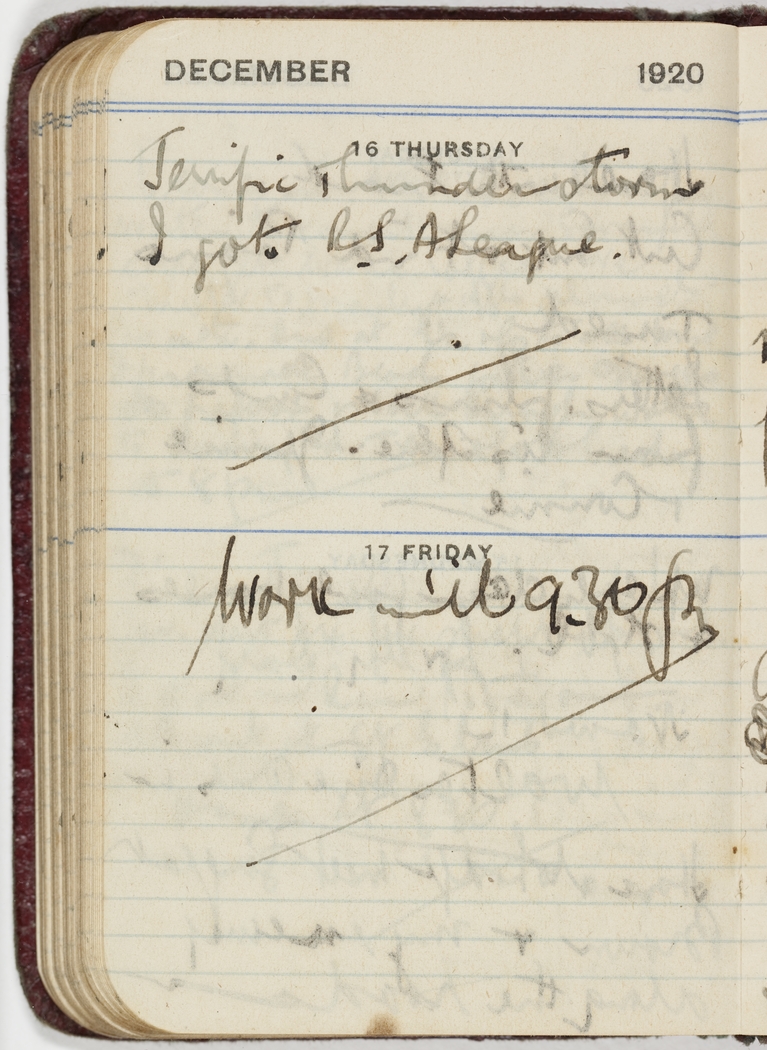 DECEMBER 1920
16 THURSDAY
Terrific Thunder storm
I got. R.S, A League.
17 FRIDAY
Work till 9.30